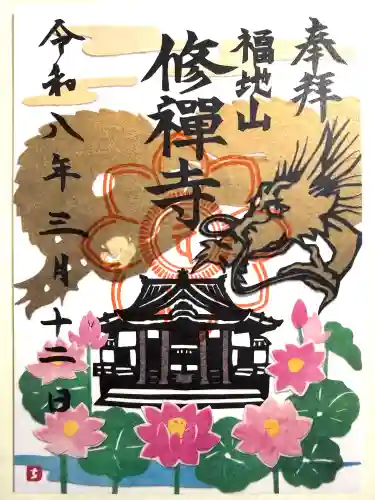 奉拝
福地山
修禅寺
令和八年三月十二日